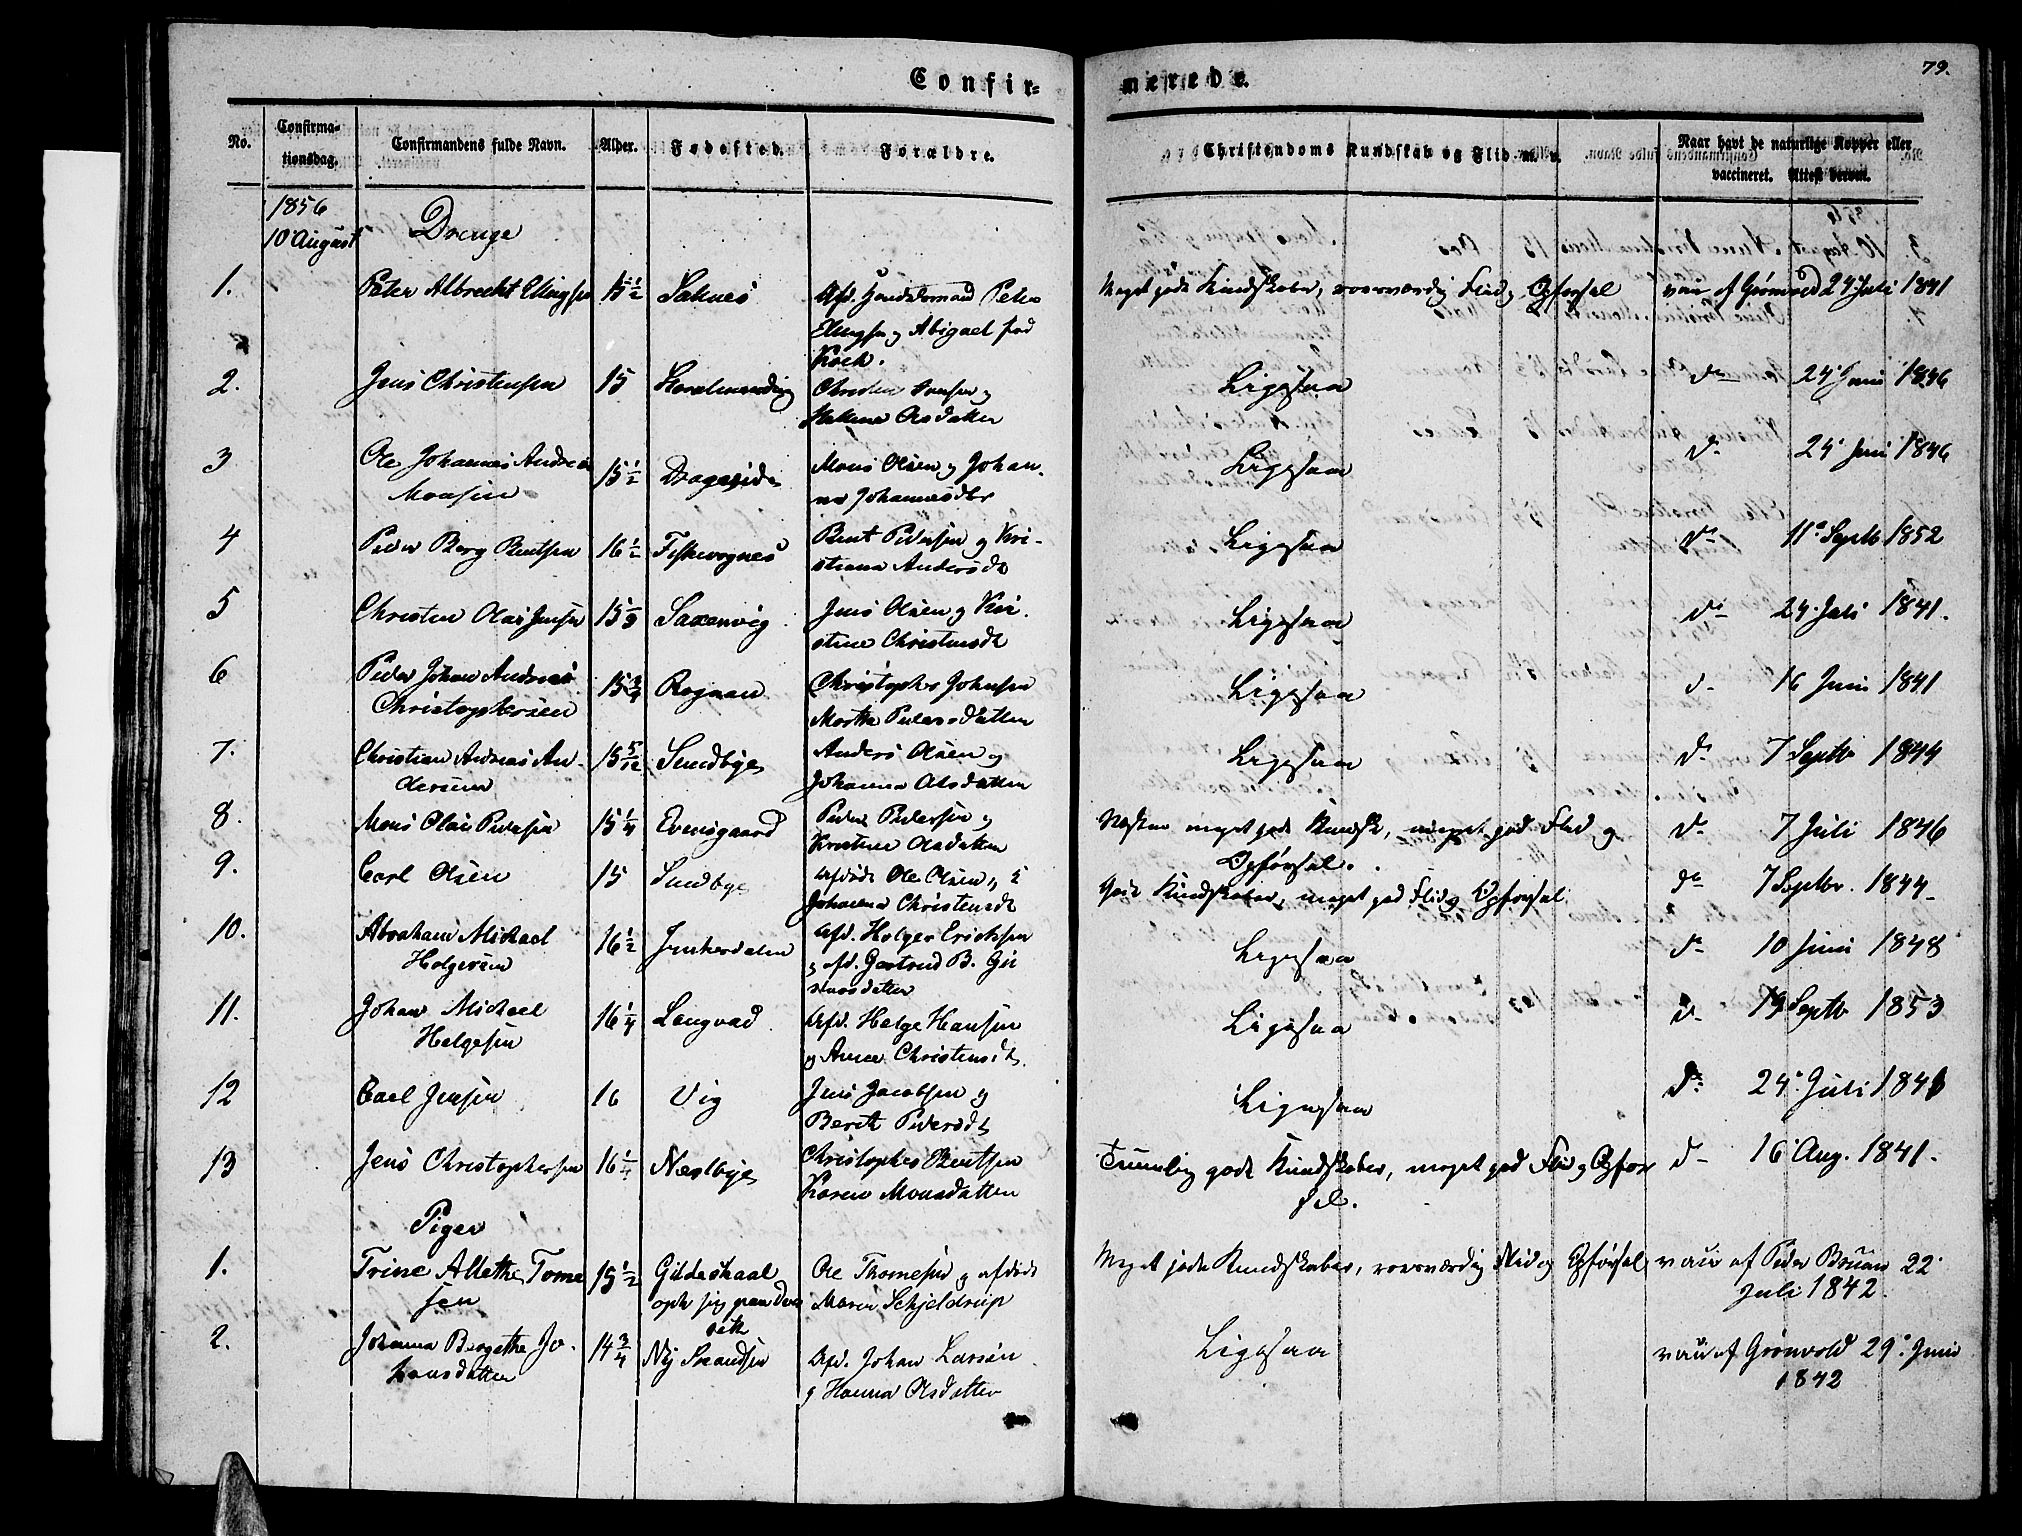 Confir=
No.
Confirma-
tionsdag.
Confirmandens fulde Navn.
Alder.
Fødested.
Forældre.
1856
10 August
Drenge
1. Peter Albrecht Ellingsen 15 1/2 Saknes Afd. Huusbmand Peter
Ellingsen og Abigael fød
Koch.
2. Jens Christensen 15 Storalmending Christen Jensen og
Olsdatter
3 Ole Johannes Andreas
Monsen 15 1/2 Drageeide Mons Olsen og Johan-
na Johannesdtr
4 Peder Berg Bentsen 16 1/2 Fiskevognes Bent Pedersen og Kri-
stiana Andersdt
5 Christen Olai Jensen 15 1/3 Saxenvig Jens Olsen og Kir-
stine Christensdt
6 Peder Johan Andreas
Christophersen 15 3/4 Rognan Christopher Johnsen
Marthe Pedersdatter
7. Christian Andreas An-
dersen 15 5/12 Sundbye Anders Olsen og
Johanna Olsdatter
8. Mons Olai Pedersen 15 1/4 Evensgaard Peder Pedersen og
Kristine Olsdatter
9. Carl Olsen 15 Sundbye Afdøde Ole Olsen og
Johanna Christensdt
10. Abraham Michael
Holgersen 16 1/2 Junkerdalen Afd. Holger Ericksen
og afd. Gertrud B. Gu
narsdatter
11. Johan Michael
Helgesen 16 1/4 Lengvad Afd. Helge Hansen
og Anne Christensdt.
12 Carl Jensen 16 Vig Jens Jacobsen og
Berith Pedersdt
13 Jens Christophersen 16 1/4 Næstbye Christopher Bentsen
Karen Monsdatter
Piger
1. Trine Allethe Tome
sen 15 1/2 Gildeskaal
Ole Thomesen og afdøde
Maren Schjeldrup
2. Johanna Bergethe Jo-
hansdatter 14 3/4 Afd. Johan Larsen
og Hanna Olsdatter
merede.
79.
Christendoms Kundskab og Flid m. v.
Naar havt de naturlige Kopper eller
vaccineret. Attest derom.
Meget gode Kundskaber, roesværdig Flid og Opførsel vac. af Grønvold 24 Juli 1841
Ligesaa do 24 Juni 1846
Ligesaa do 24 Juni 1846
Ligesaa do 11 Septb 1852
Ligesaa do 24. Juli 1841.
Ligesaa do 16 Juni 1841
Ligesaa do 7 Septb 1844
Næsten meget gode Kundsk., meget god Flid og do 7 Juli 1846
Opførsel.
Gode Kundskaber, meget god Flid og Opførsel do 7 Septbr. 1844
Ligesaa do 10 Juni 1848
Ligesaa do 19 Septb 1853
Ligesaa do 24. Juli 1841
Temmelig gode Kundskaber, meget god Flid og Opfør do 16 Aug. 1841.
sel.
Meget gode Kundskaber, roesværdig Flid og Opførsel vac. af Peder Bruun 22
Juli 1842.
Ligesaa vac. af Grønvold 29. Juni
1842